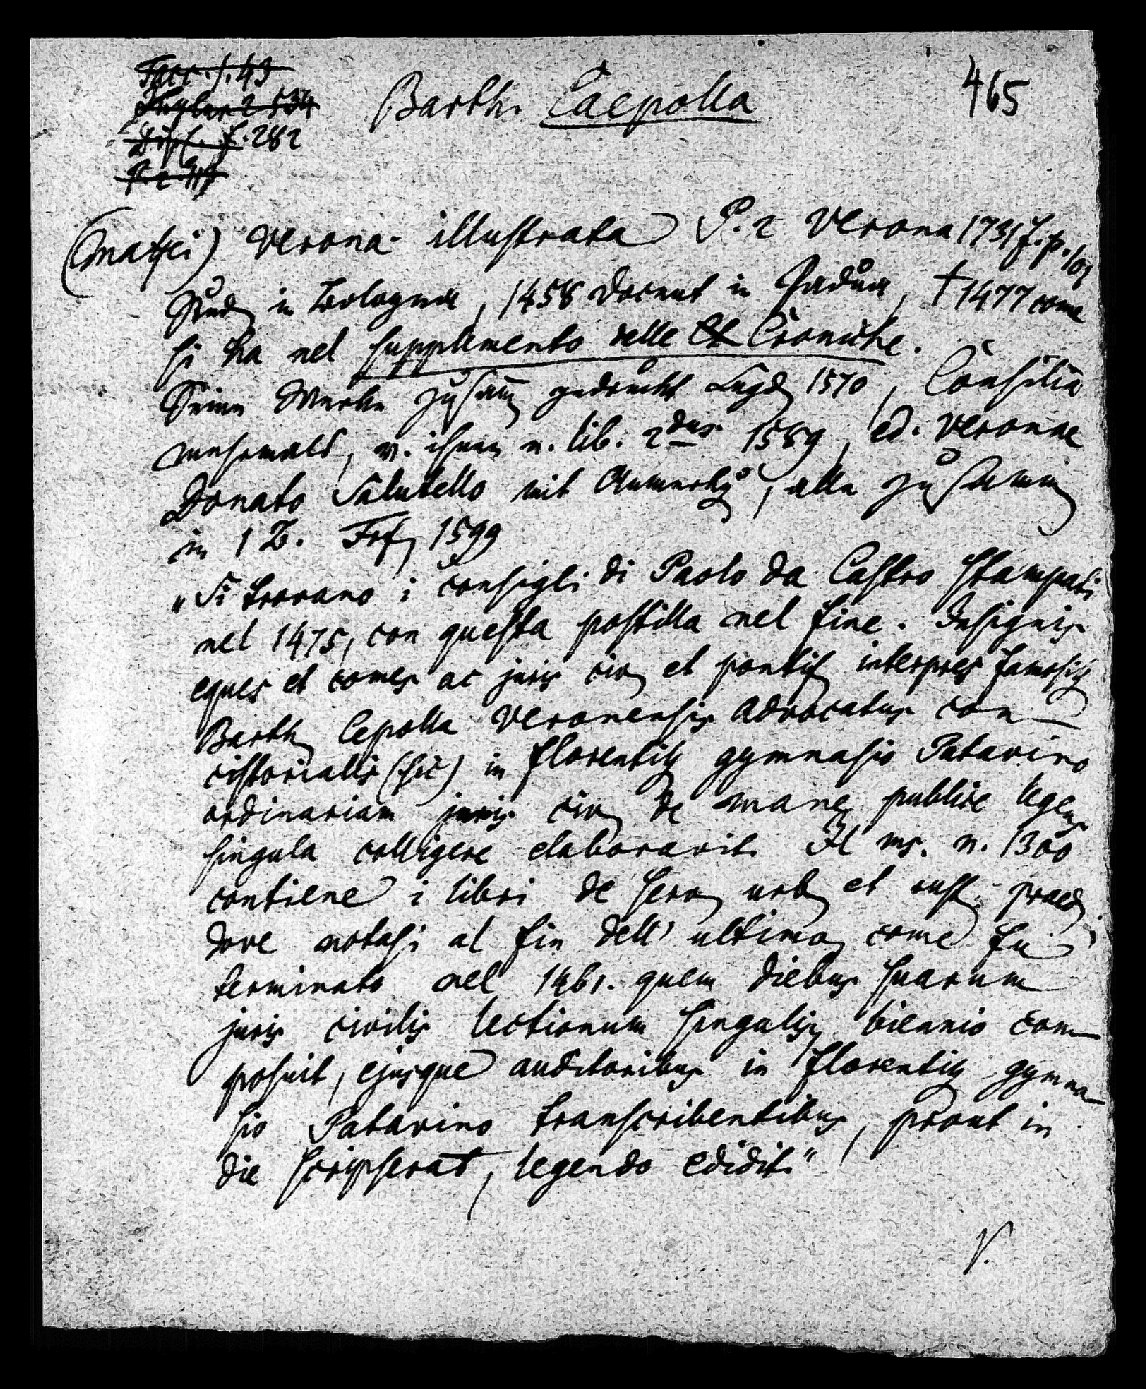 465
Facc. f. 43
2 534
Dipl. f. 282
P. 2
Barth. Caepolla
(Maffei) Verona illustrata P. 2 Verona 1731 f. p. 101
Stud. in Bologna, 1458 docent in Padua, † 1477 come
si ha nel supplimento delle Croniche.
Seine Werke zusam̄ gedruckt Lugd 1570, Consilia
mehrmals, v. ihnen n. lib. 2dus 1589, ed. Veronae
Donato Salutello mit Anmerkg, alle zusamm
in 1 B. Frf 1599
„Si trovano i consigli di Paolo da Castro stampati
nel 1475, con questa postilla nel fine. Insignis
eques et comes ac juris civ et pontif interpres famosis
Barth Cepolla Veronensis advocatus con-
cistorialis (sic) in florentiss gymnasio Patavino
ordinariam juris civ de mane publice legens
singula colligere elaboravit. Il ms. n. 1300
contiene i libri de serv urb et rust. praed
dove notasi al fin dell' ultimo, come fu
terminato nel 1461. quem diebus suarum
juris civilis lectionum singulis, biennio com-
posuit, ejusque auditoribus in florentiss gymna-
sio Patavino transcribentibus, prout in
die scripserat, legendo edidit."
V.